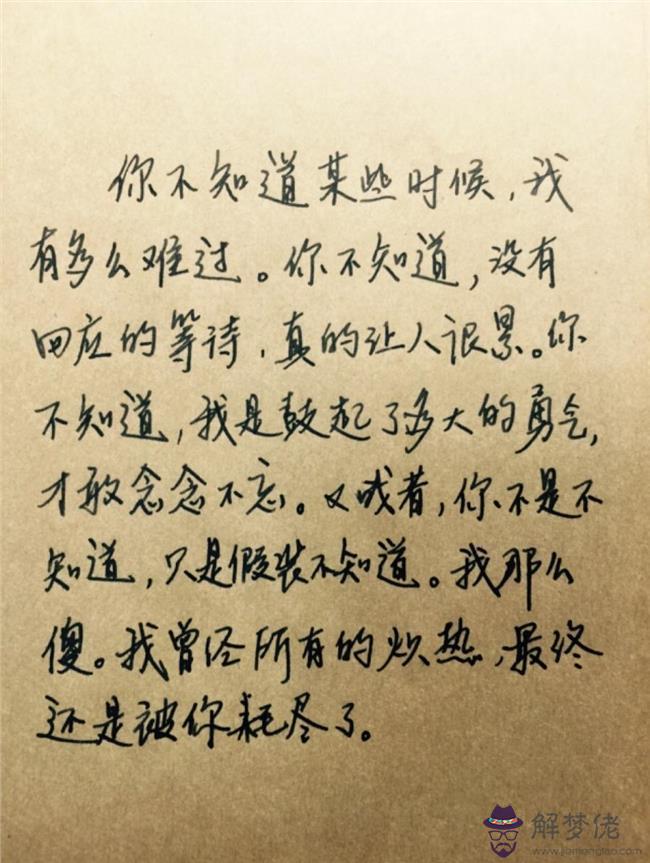 你不知道某些时候,我
有多么难过。你不知道,没有
回应的等待,真的让人很累。你
不知道,我是鼓起了多大的勇气,
才敢念念不忘。又或者,你不是不
知道,只是假装不知道。我那么
傻。我曾经所有的炽热,最终
还是被你耗尽了。
解梦佬
www.jiemenglao.com